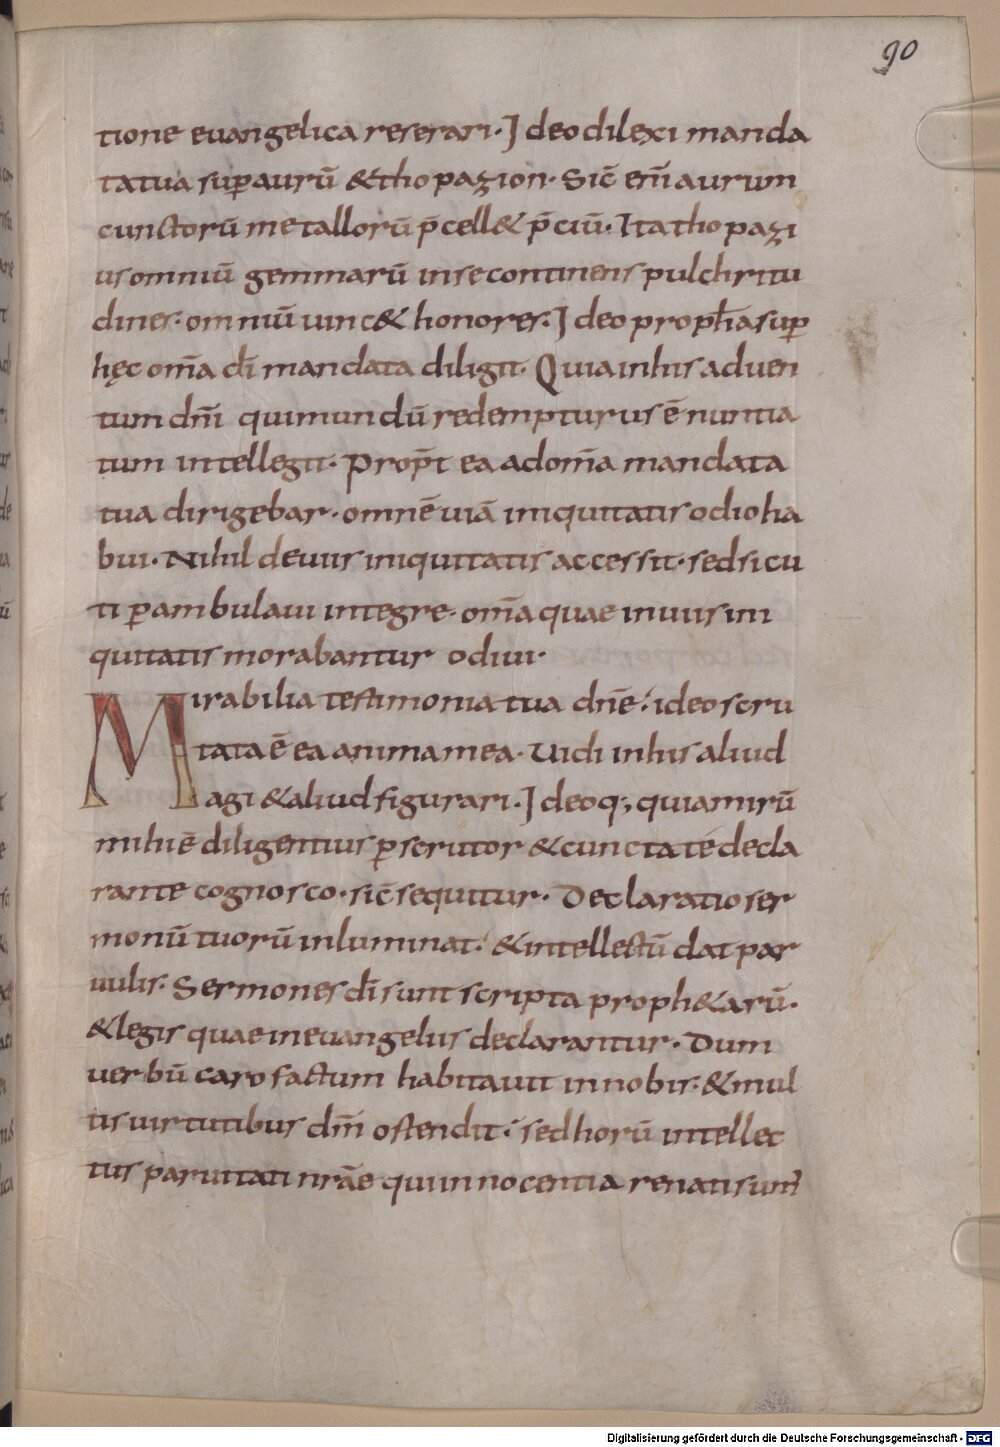 90
tione euangelica reserari. Ideo dilexi manda
ta tua sup aurū & thopazion. Sic̄ eni̅ aurum
cunctorū metallorū p̄cell& p̄ciū. Ita thopazi
us omniū gemmarū in se continens pulchritu
dines. omniū uinc& honores. Ideo proph̄a sup
hęc om̄a dī mandata diligit. Quia in his aduen
tum dn̄i qui mundū redempturus ē nuntia
tum intellegit. Prop̄t ea ad om̄a mandata
tua dirigebar. omnē uiā iniquitatis odio ha
bui. Nihil de uiis iniquitatis accessit. sed sicu
ti p ambulaui integre. om̄a quae in uiis ini
quitatis morabantur odiui.
Mirabilia testimonia tua dn̄e; ideo scru
tata ē ea anima mea. Uidi in his aliud
agi & aliud figurari. Ideoq; quia mirū
mihi ē diligentius pscrutor & cuncta té decla
rante cognosco. sic̄ sequitur. Declaratio ser
monū tuorū inluminat. & intellectū dat par
uulis. Sermones dī sunt scripta proph&arū.
& legis quae in euangeliis declarantur. Dum
uerbū caro factum habitauit in nobis. & mul
tis uirtutibus dn̄m ostendit; sed horū intellec
tus paruitati nr̄ae qui innocentia renati sum̄
Digitalisierung gefördert durch die Deutsche Forschungsgemeinschaft - DFG